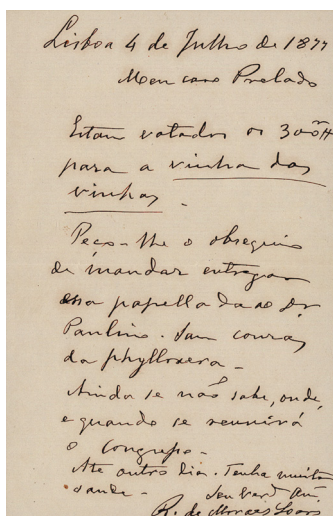 Lisboa 4 de Julho de 1877
Meu caro Prelado
Estam votados os 300
para a vinha das
vinhas.
Peço-lhe o obsequio
de mandar entregar
essa papellada ao Dr.
Paulino. Sam cousas
da phylloxera -
Ainda se não sabe, onde,
e quando se reunirá
o congresso -
Até outro dia. Tenha muita
saude -
R. de Moraes Soares